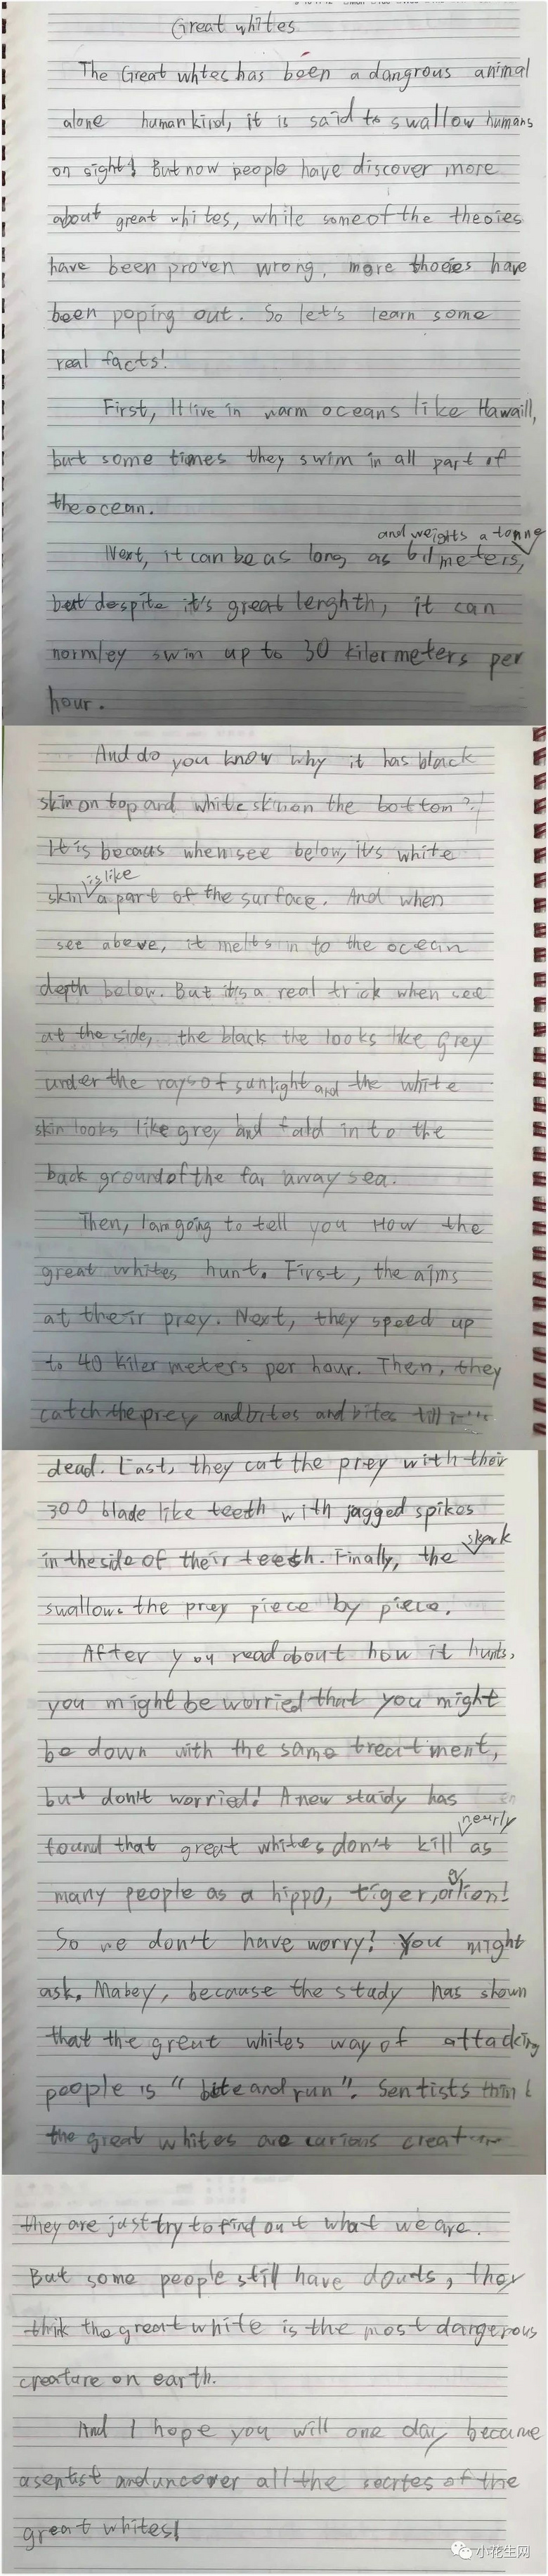 Great whites
The Great whtes has been a dangrous animal
alone humankind, it is said to swallow humans
on sight! But now people have discover more
about great whites, while some of the theoies
have been proven wrong, more thoeies have
been poping out. So let's learn some
real facts!
First, It live in warm oceans like Hawaill,
but some times they swim in all part of
the ocean.
and weights a tonne
Next, it can be as long as meters,
but despite it's great lenghth, it can
normley swim up to 30 kilermeters per
hour.
And do you know why it has black
skin on top and white skin on the bottom?!
It is becaus when see below, it's white
is like
skin a part of the surface. And when
see above, it melts in to the ocean
depth below. But it's a real trick when see
at the side, the black the looks like Grey
under the rays of sunlight and the white
skin looks like grey and fald in to the
back ground of the far away sea.
Then, I am going to tell you How the
great whites hunt. First, the aims
at their prey. Next, they speed up
to 40 kiler meters per hour. Then, they
catch the prey and bites and bites till
dead. Last, they cut the prey with their
300 blade like teeth with jagged spikes
in the side of their teeth. Finally, the
shark
swallows the prey piece by piece.
After you read about how it hunts,
you might be worried that you might
be down with the same treat ment,
but don't worried! A new study has
found that great whites don't kill as
nearly
many people as a hippo, tiger, or lion!
So we don't have worry? You might
ask. Mabey, because the study has shown
that the great whites way of attacking
people is "bite and run". Sentists think
the great whites are curious
they are just try to find out what we are.
But some people still have douts, they
think the great white is the most dangerous
creature on earth.
And I hope you will one day became
a sentist and uncover all the secrtes of the
great whites!
小花生网